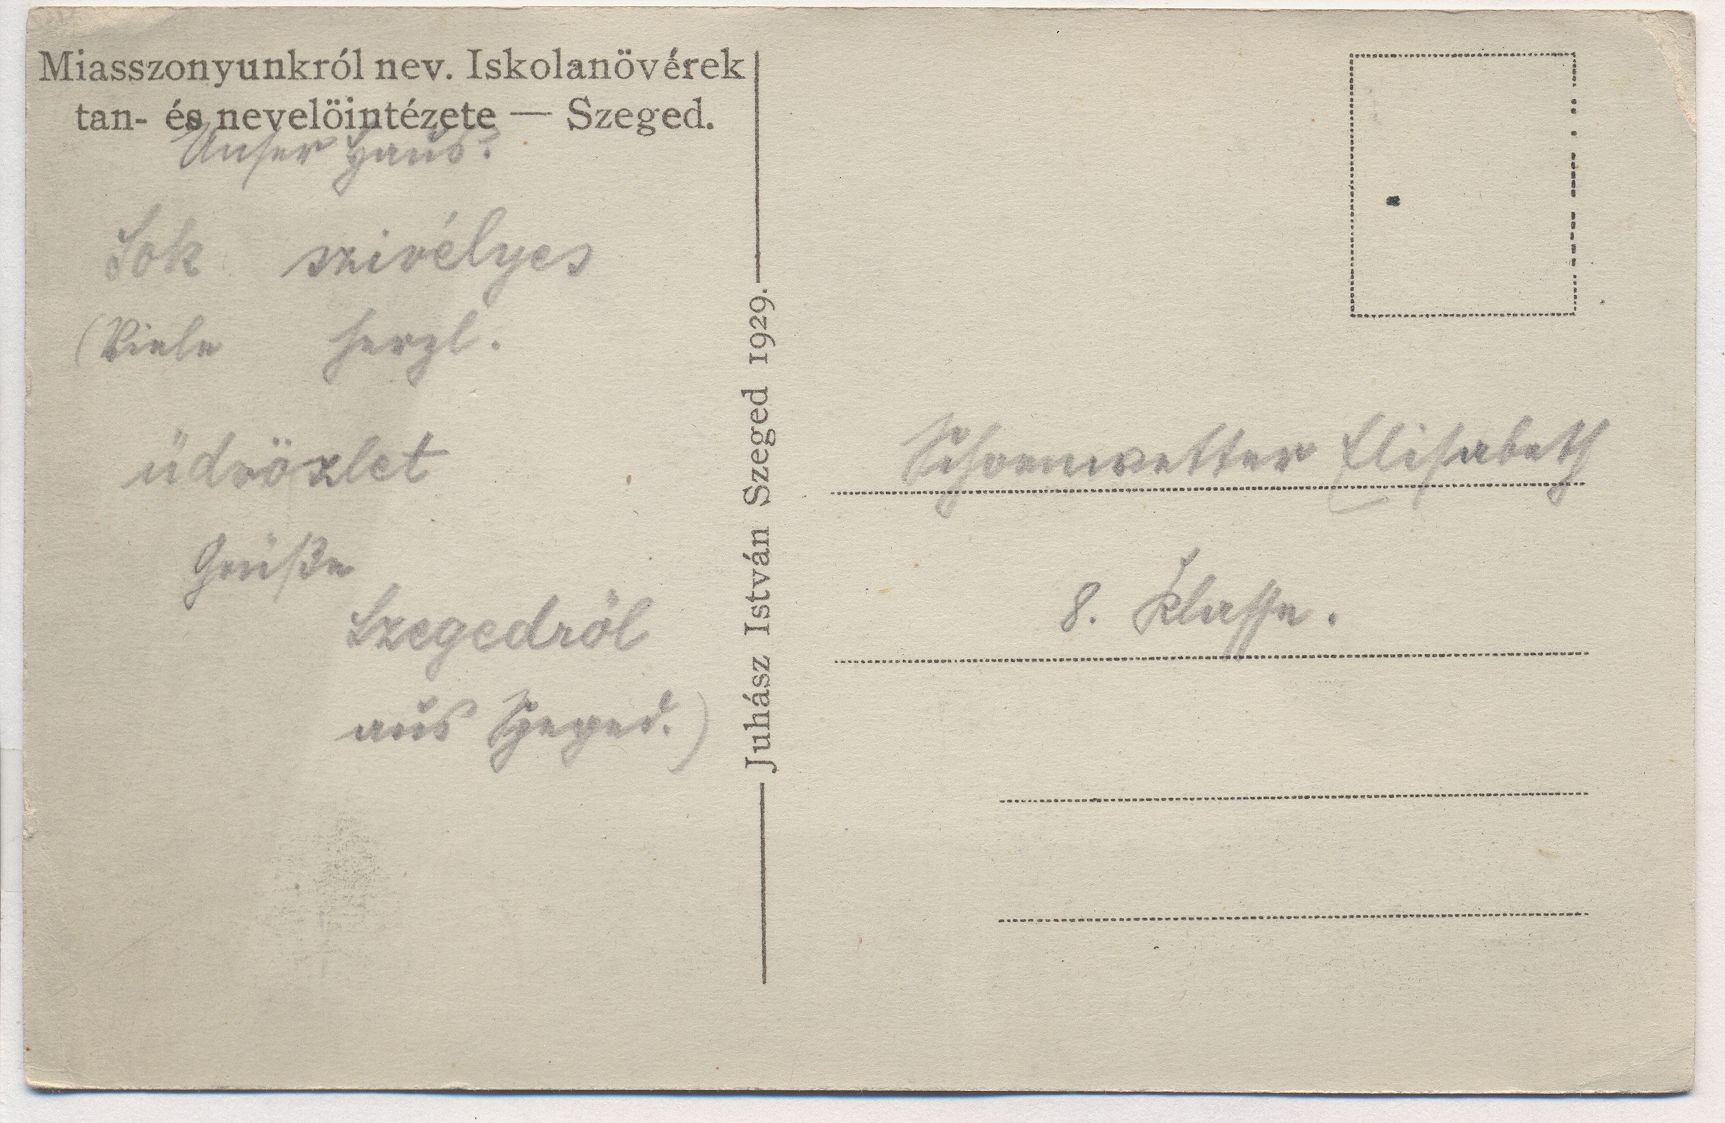 Miasszonyunkról nev. Iskolanövérek
tan- és nevelöintézete — Szeged.
Unser Haus.
Sok szivélyes
(Viele herzl.
üdvözlet
Grüße
Szegedröl
aus Szeged.)
Juhász István Szeged 1929.
Schoenwetter Elisabeth
8. Klasse.